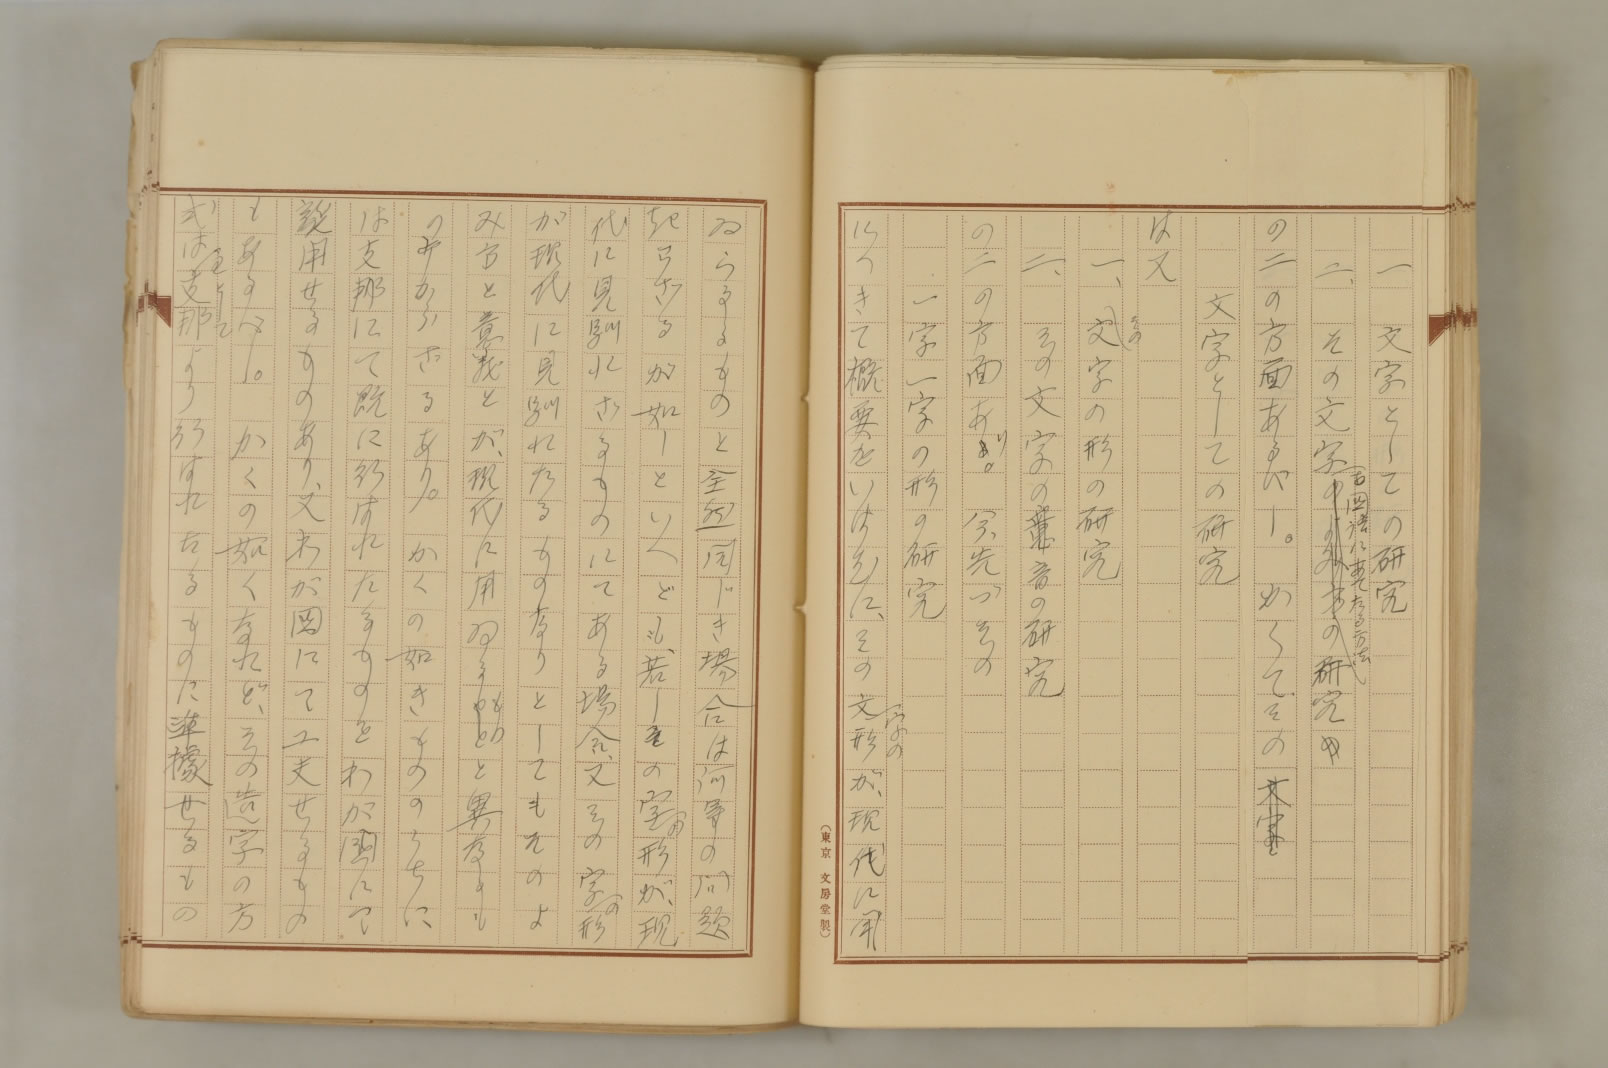 一 文字としての研究
二、その文字の古国語にあてたる方法の研究
の二の方面あるべし。かくてその
文字としての研究
は又
一、その文字の形の研究
二、その文字の音の研究
の二の方面あり。今先づその
一字一字の形の研究
につきて概要をいはむに、その文字の形が、現代に用
ゐらるるものと全然同じき場合は何等の問題
起らざるが如しといへども、若しその字の形が、現
代に見馴れざるものにてある場合、又その字の形
が現代に見馴れたるものなりとしてもそのよ
み方と意義とが、現代に用ゐるものと異なるも
のすくなからざるあり。かくの如きもののうちに
は支那にて既に行はれたるものをわが国にて
説用せるものあり、又わが国にて工夫せるもの
もあるべし。かくの如くなれど、その造字の方
式は主として支那より行はれたるものに準據せるもの
(東京 文房堂製)